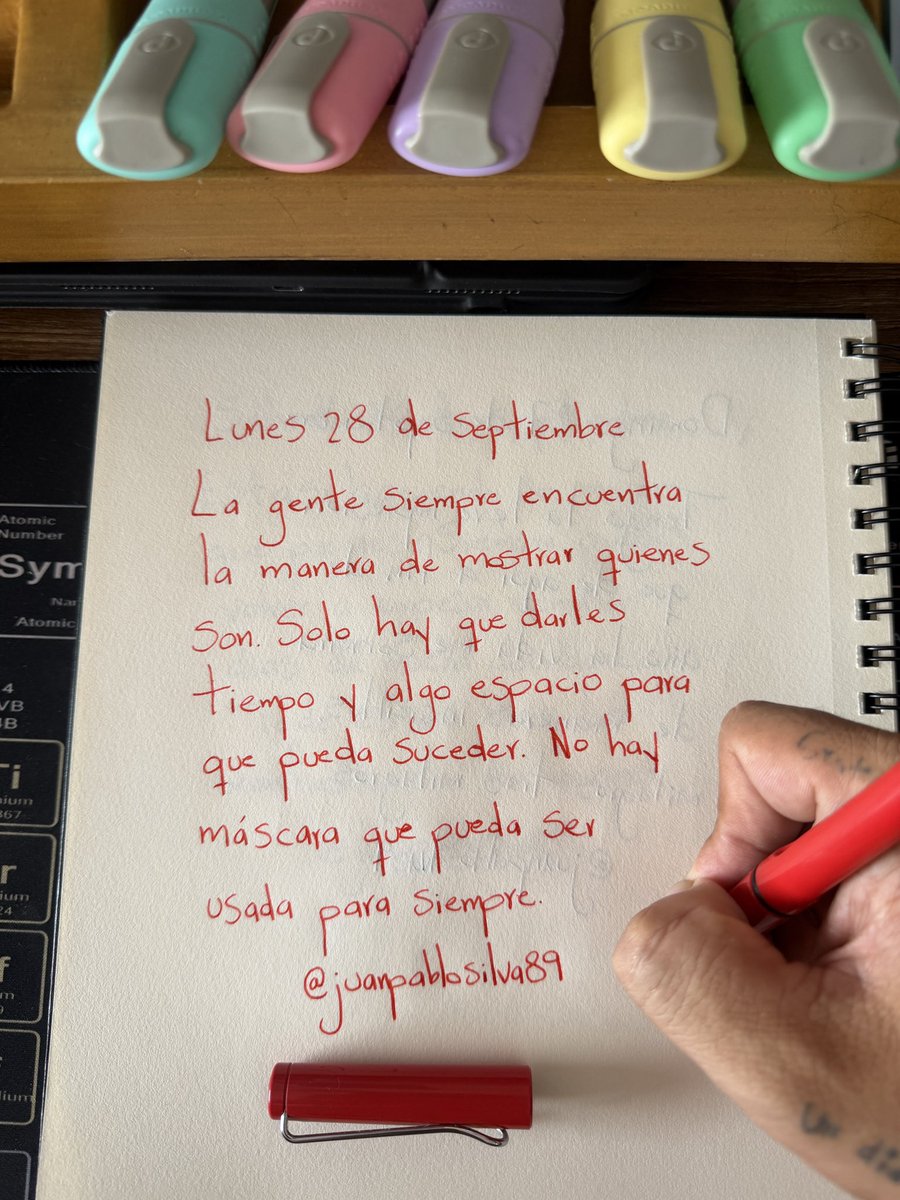 Lunes 28 de Septiembre
La gente siempre encuentra
la manera de mostrar quienes
son. Solo hay que darles
tiempo y algo espacio para
que pueda suceder. No hay
máscara que pueda ser
usada para siempre.
@juanpablosilva89
Atomic
Number
Sym
Atomic
4
VB
4B